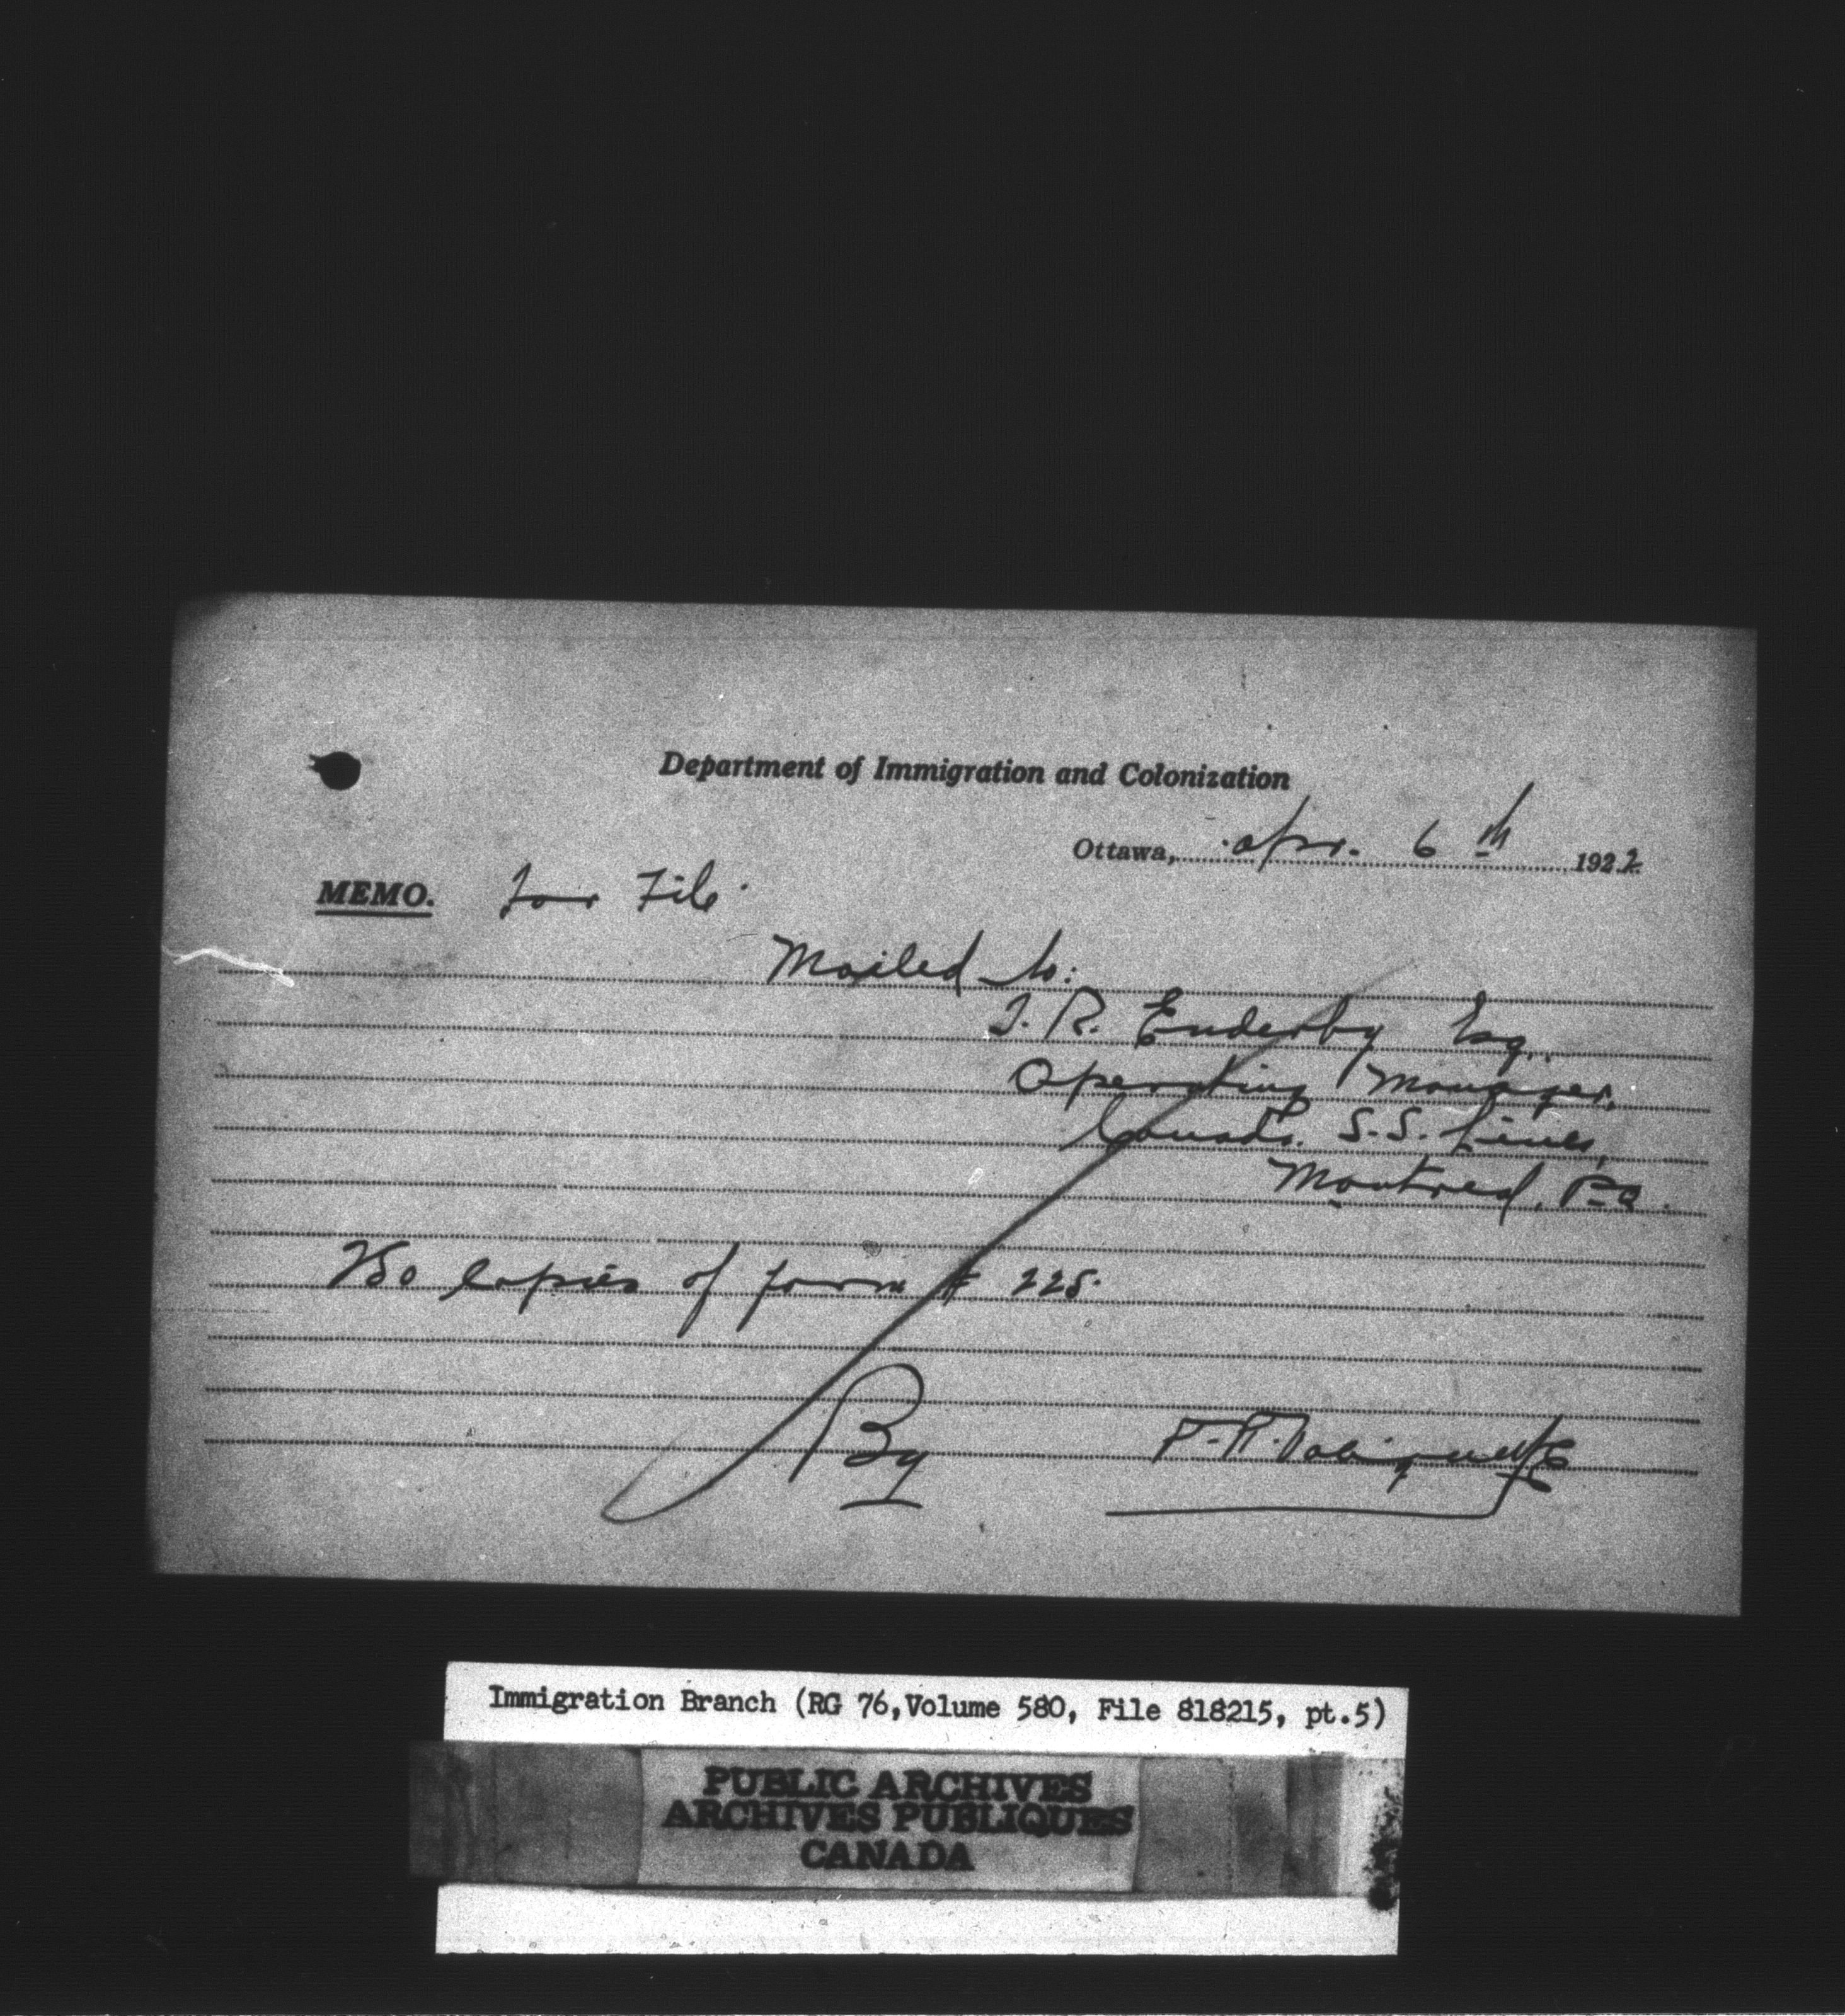 Department of Immigration and Colonization
Ottawa, Apr. 6th 1922
MEMO. for File.
Mailed to:
T. R. Enderby Esq.,
Operating Manager,
Canada S.S. Lines,
Montreal, P.Q.
copies of form # 225.
By
Immigration Branch (RG 76, Volume 580, File 818215, pt.5)
PUBLIC ARCHIVES
ARCHIVES PUBLIQUES
CANADA